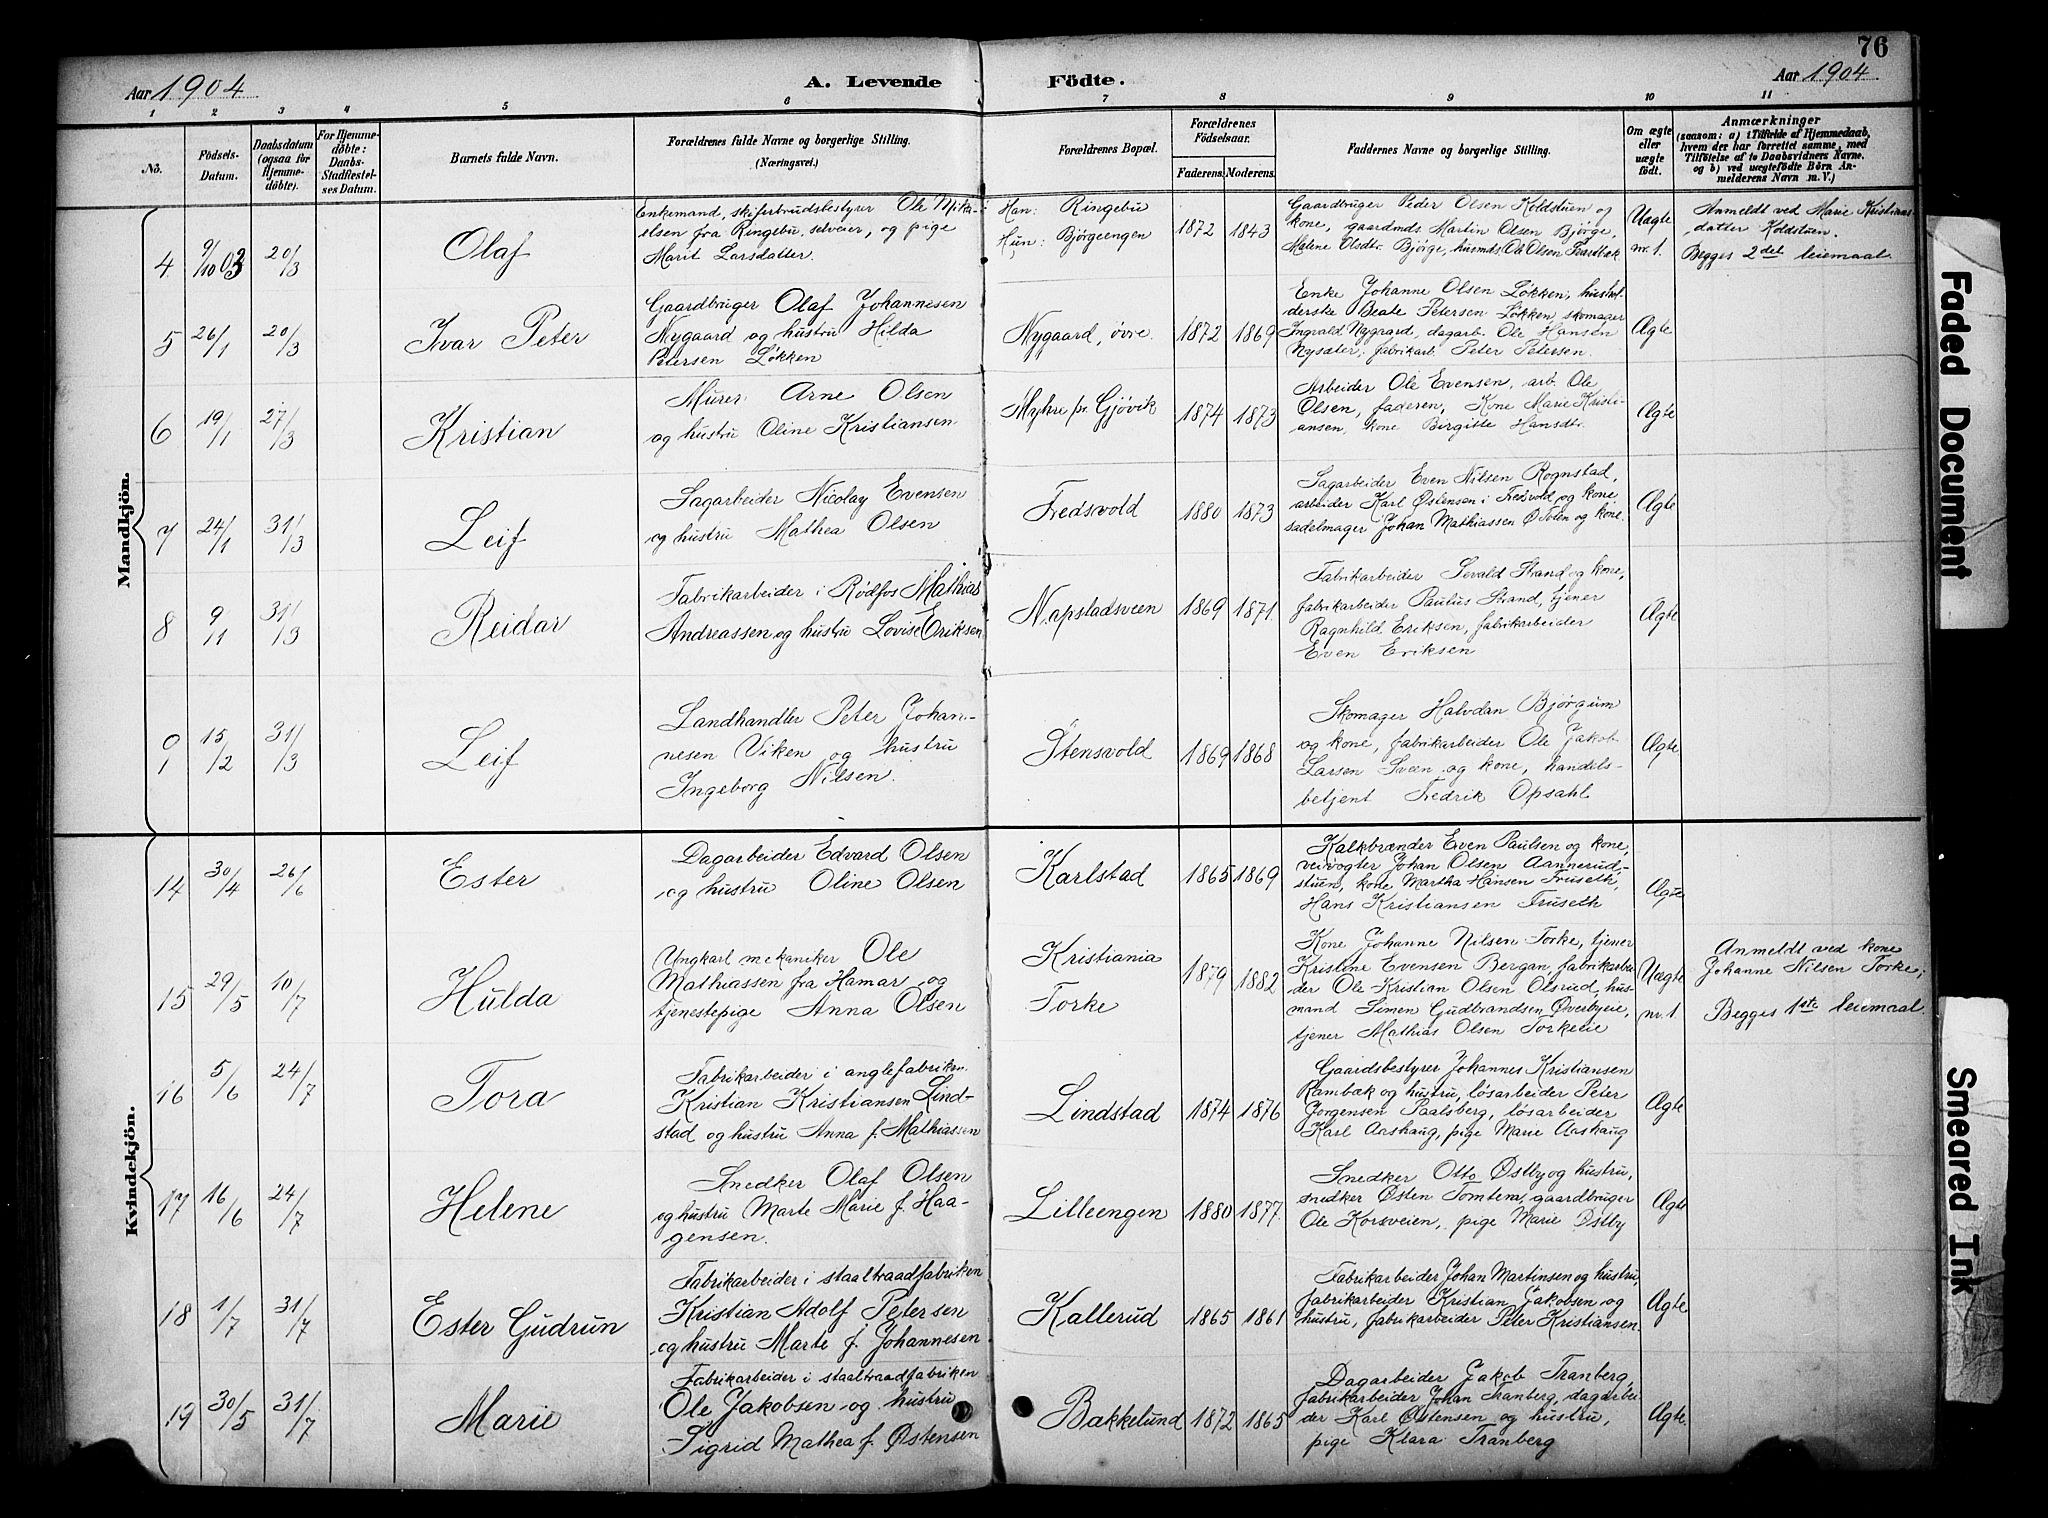 76
Aar 1904
A. Levende Födte.
Aar 1904
1 2 3 4 5 6 7 8 9 10 11
No.
Födsels-
Datum.
Daabsdatum
(ogsaa for
Hjemme-
döbte).
For Hjemme-
döbte:
Daabs-
Stadfæstel-
ses Datum.
Barnets fulde Navn.
Forældrenes fulde Navne og borgerlige Stilling.
(Næringsvei.)
Forældrenes Bopæl.
Forældrenes
Födselsaar.
Faderens. Moderens.
Faddernes Navne og borgerlige Stilling.
Om ægte
eller
uægte
födt.
Anmærkninger
(saasom: a) i Tilfælde af Hjemmedaab,
hvem der har forrettet samme, med
Tilföielse af to Daabsvidners Navne,
og b) ved uægtefödte Börn An-
melderens Navn m. V.)
Mandkjön.
4
9/10 03
20/3
Olaf
Enkemand, skiferbrudsbestyrer Ole Mika-
elsen fra Ringebu, selveier, og pige
Marit Larsdatter.
Han: Ringebu
Hun: Bjørgeengen
1872 1843
Gaardbruger Peder Olsen Koldstuen og
kone, gaardmds. Martin Olsen Bjørge,
Malene Olsdtr. Bjørge, husmds. Ole Olsen
Uægte
nr. 1.
Anmeldt ved Marie Kristians-
datter Koldstuen.
Begges 2det leiemaal.
5
26/1
20/3
Ivar Peter
Gaardbruger Olaf Johannesen
Nygaard og hustru Hilda
Petersen Løkken
Nygaard, øvre.
1872 1869
Enke Johanne Olsen Løkken, hushol-
derske Beate Petersen Løkken skomager
Ingvald Nygaard, dagarb. Ole Hansen
Nysæter, fabrikarb. Peter Petersen.
Ægte
6
19/1
27/3
Kristian
Murer Arne Olsen
og hustru Oline Kristiansen
Myhre pr. Gjøvik
1874 1873
Arbeider Ole Evensen, arb. Ole
Olsen, faderen, Kone Marie Kristi-
ansen, kone Birgitte Hansdtr.
Ægte
7
24/1
31/3
Leif
Sagarbeider Nicolay Evensen
og hustru Mathea Olsen
Fredsvold
1880 1873
Sagarbeider Even Nilsen Rognstad,
arbeider Karl Østensen i Fredsvold og kone,
sadelmager Johan Mathiassen Ø Toten og kone.
Ægte
8
9/11
31/3
Reidar
Fabrikarbeider i Rødfos Mathias
Andreassen og hustru Lovise Eriksen
Napstadsveen
1869 1871.
Fabrikarbeider Sevald Strand og kone,
fabrikarbeider Paulus Strand, tjener
Ragnhild Eriksen, fabrikarbeider
Even Eriksen
Ægte
9
15/2
31/3
Leif
Landhandler Peter Johan-
nesen Viken og hustru
Ingeborg Nilsen.
Stensvold
1869 1868
Skomager Halvdan Bjørgum
og kone, fabrikarbeider Ole Jakob
Larsen Sveen og kone, handels-
betjent Fredrik Opsahl
Ægte
Kvindekjön.
14
30/4
26/6
Ester
Dagarbeider Edvard Olsen
og hustru Oline Olsen
Karlstad
1865 1869
Kalkbrænder Even Paulsen og kone,
veivogter Johan Olsen Aannerud-
stuen, kone Martha Hansen Fruseth,
Hans Kristiansen Fruseth
Ægte
15
29/5
10/7
Hulda
Ungkarl mekaniker Ole
Mathiassen fra Hamar og
tjenestepige Anna Olsen
Kristiania
Torke
1879 1882
Kone Johanne Nilsen Torke, tjener
Kristine Evensen Bergan, fabrikarbei-
der Ole Kristian Olsen Olsrud, hus-
mand Simen Gudbrandsen Øverbyeie,
tjener Mathias Olsen Torkeeie
Uægte
nr. 1
Anmeldt ved kone
Johanne Nilsen Torke;
Begges 1ste leiemaal.
16
5/6
24/7
Tora
Fabrikarbeider i anglefabriken
Kristian Kristiansen Lind-
stad og hustru Anna f. Mathiassen
Lindstad
1874 1876
Gaardsbestyrer Johannes Kristiansen
Rambæk og hustru, løsarbeider Peter
Jørgensen Paalsberg, løsarbeider
Karl Aashaug, pige Marie Aashaug
Ægte
17
16/6
24/7
Helene
Snedker Olaf Olsen
og hustru Marte Marie f. Haa-
gensen.
Lilleengen
1880 1877.
Snedker Otto Østby og hustru,
snedker Østen Tomten, gaardbruger
Ole Korsveien, pige Marie Østby
Ægte
18
1/7
31/7
Ester Gudrun
Fabrikarbeider i staaltraadfabriken
Kristian Adolf Petersen
og hustru Marte f. Johannesen
Kallerud
1865 1861
Fabrikarbeider Johan Martinsen og hustru,
fabrikarbeider Kristian Jakobsen og
hustru, fabrikarbeider Peter Kristiansen.
Ægte
19
30/5
31/7
Marie
Fabrikarbeider i staaltraadfabriken
Ole Jakobsen og hustru
Sigrid Mathea f. Østensen
Bakkelund
1872 1865
Dagarbeider Jakob Tranberg,
fabrikarbeider Johan Tranberg, dagarbei-
der Karl Østensen og hustru,
pige Klara Tranberg
Ægte
Faded Document
Smeared Ink